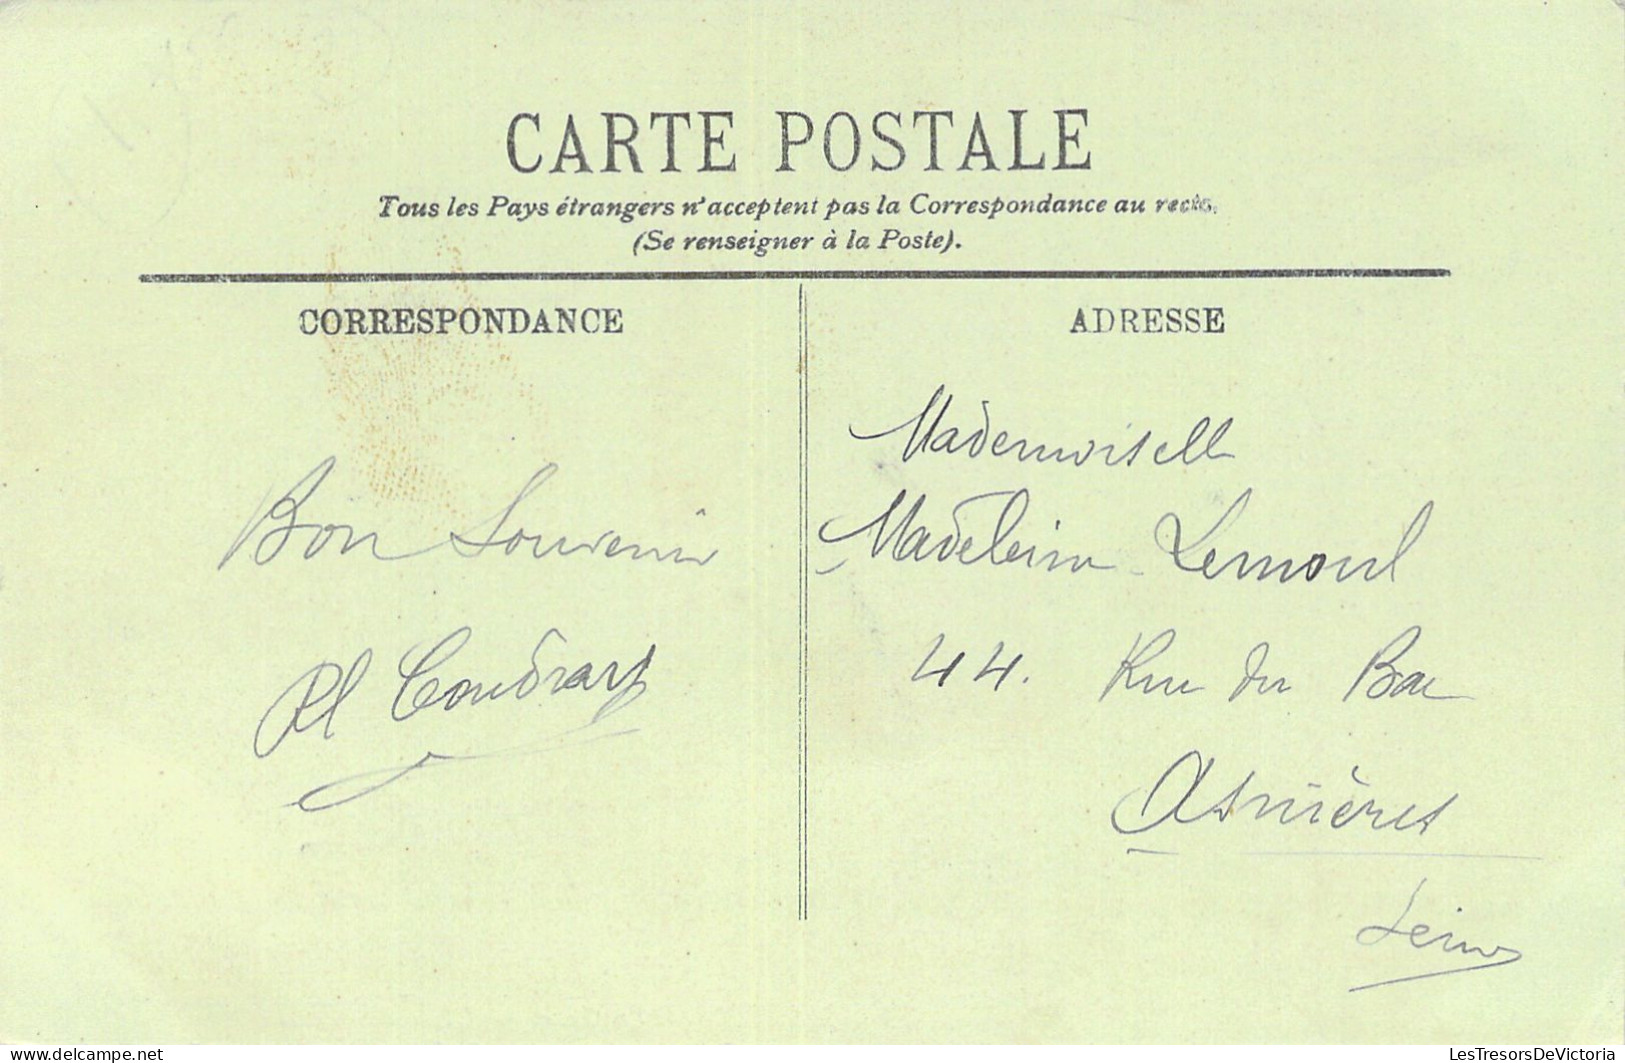 CARTE POSTALE
Tous les Pays étrangers n'acceptent pas la Correspondance au recto.
(Se renseigner à la Poste).
CORRESPONDANCE
Bon Souvenir
ADRESSE
Mademoiselle
Madeleine
44. Rue du Bac
Asnières
Seine
delcampe.net
LesTresorsDeVictoria